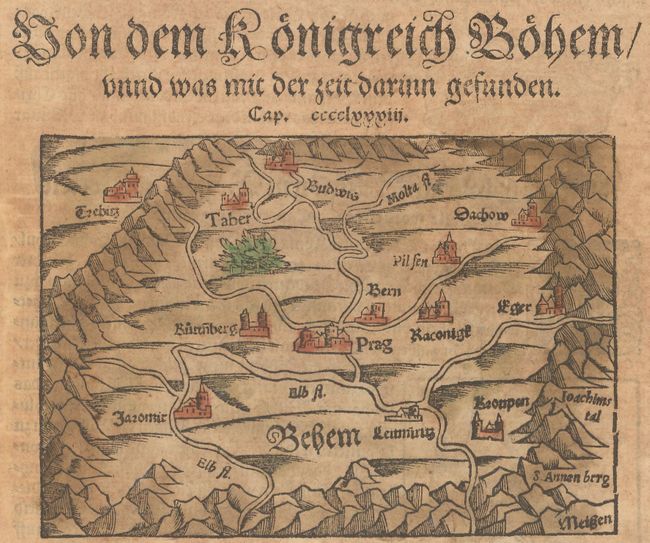 Von dem Königreich Böhem/
vnnd was mit der zeit darinn gefunden.
Cap. cccclxxxiij.
Budwis
Molta fl.
Trebitz
Taber
Dachow
Pilsen
Bern
Eger
Kuttnberg
Raconigk
Prag
Elb fl.
Krompen
Joachims
tal
Jaromir
Behem
Leitmiritz
Elb fl.
S. Annenberg
Meißen